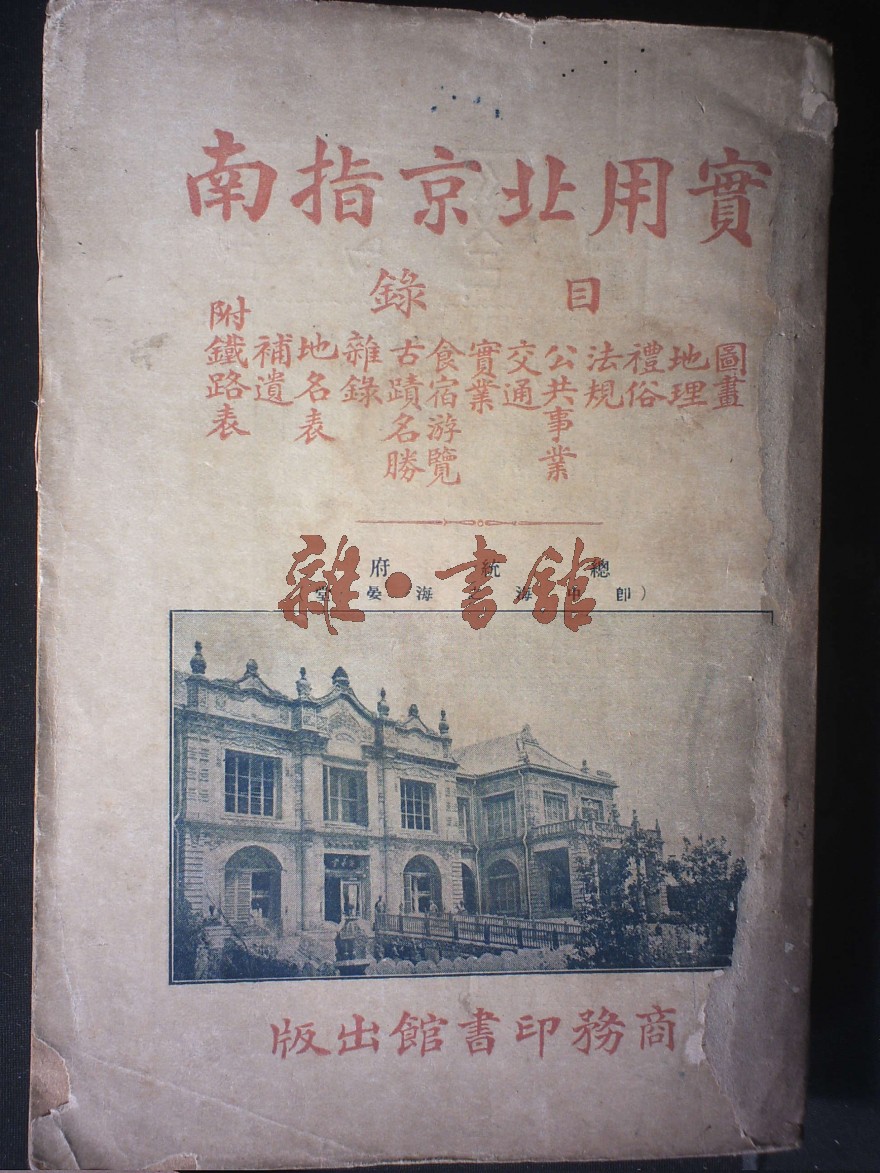 實用北京指南
目錄
圖畫
地理
禮俗
法規
公共事業
交通
實業
食宿游覽
古蹟名勝
雜錄
地名表
補遺
附鐵路表
總統府
雜·書館
商務印書館出版